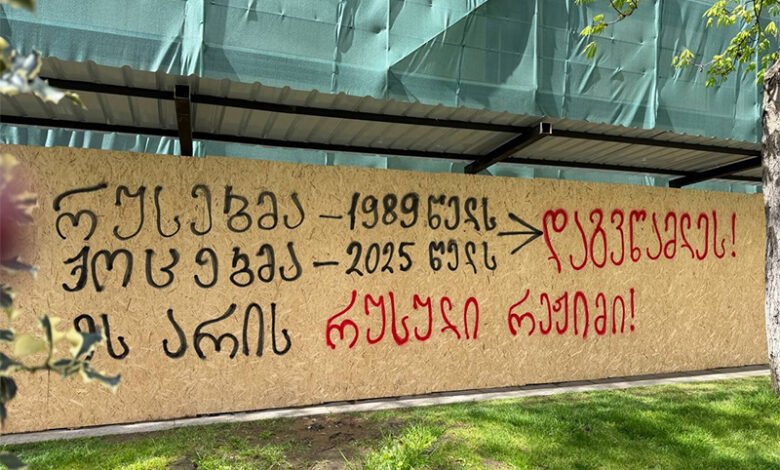 რუსებმა – 1989 წელს → დაგვწამლეს!
ქოცებმა – 2025 წელს
ეს არის რუსული რეჟიმი!